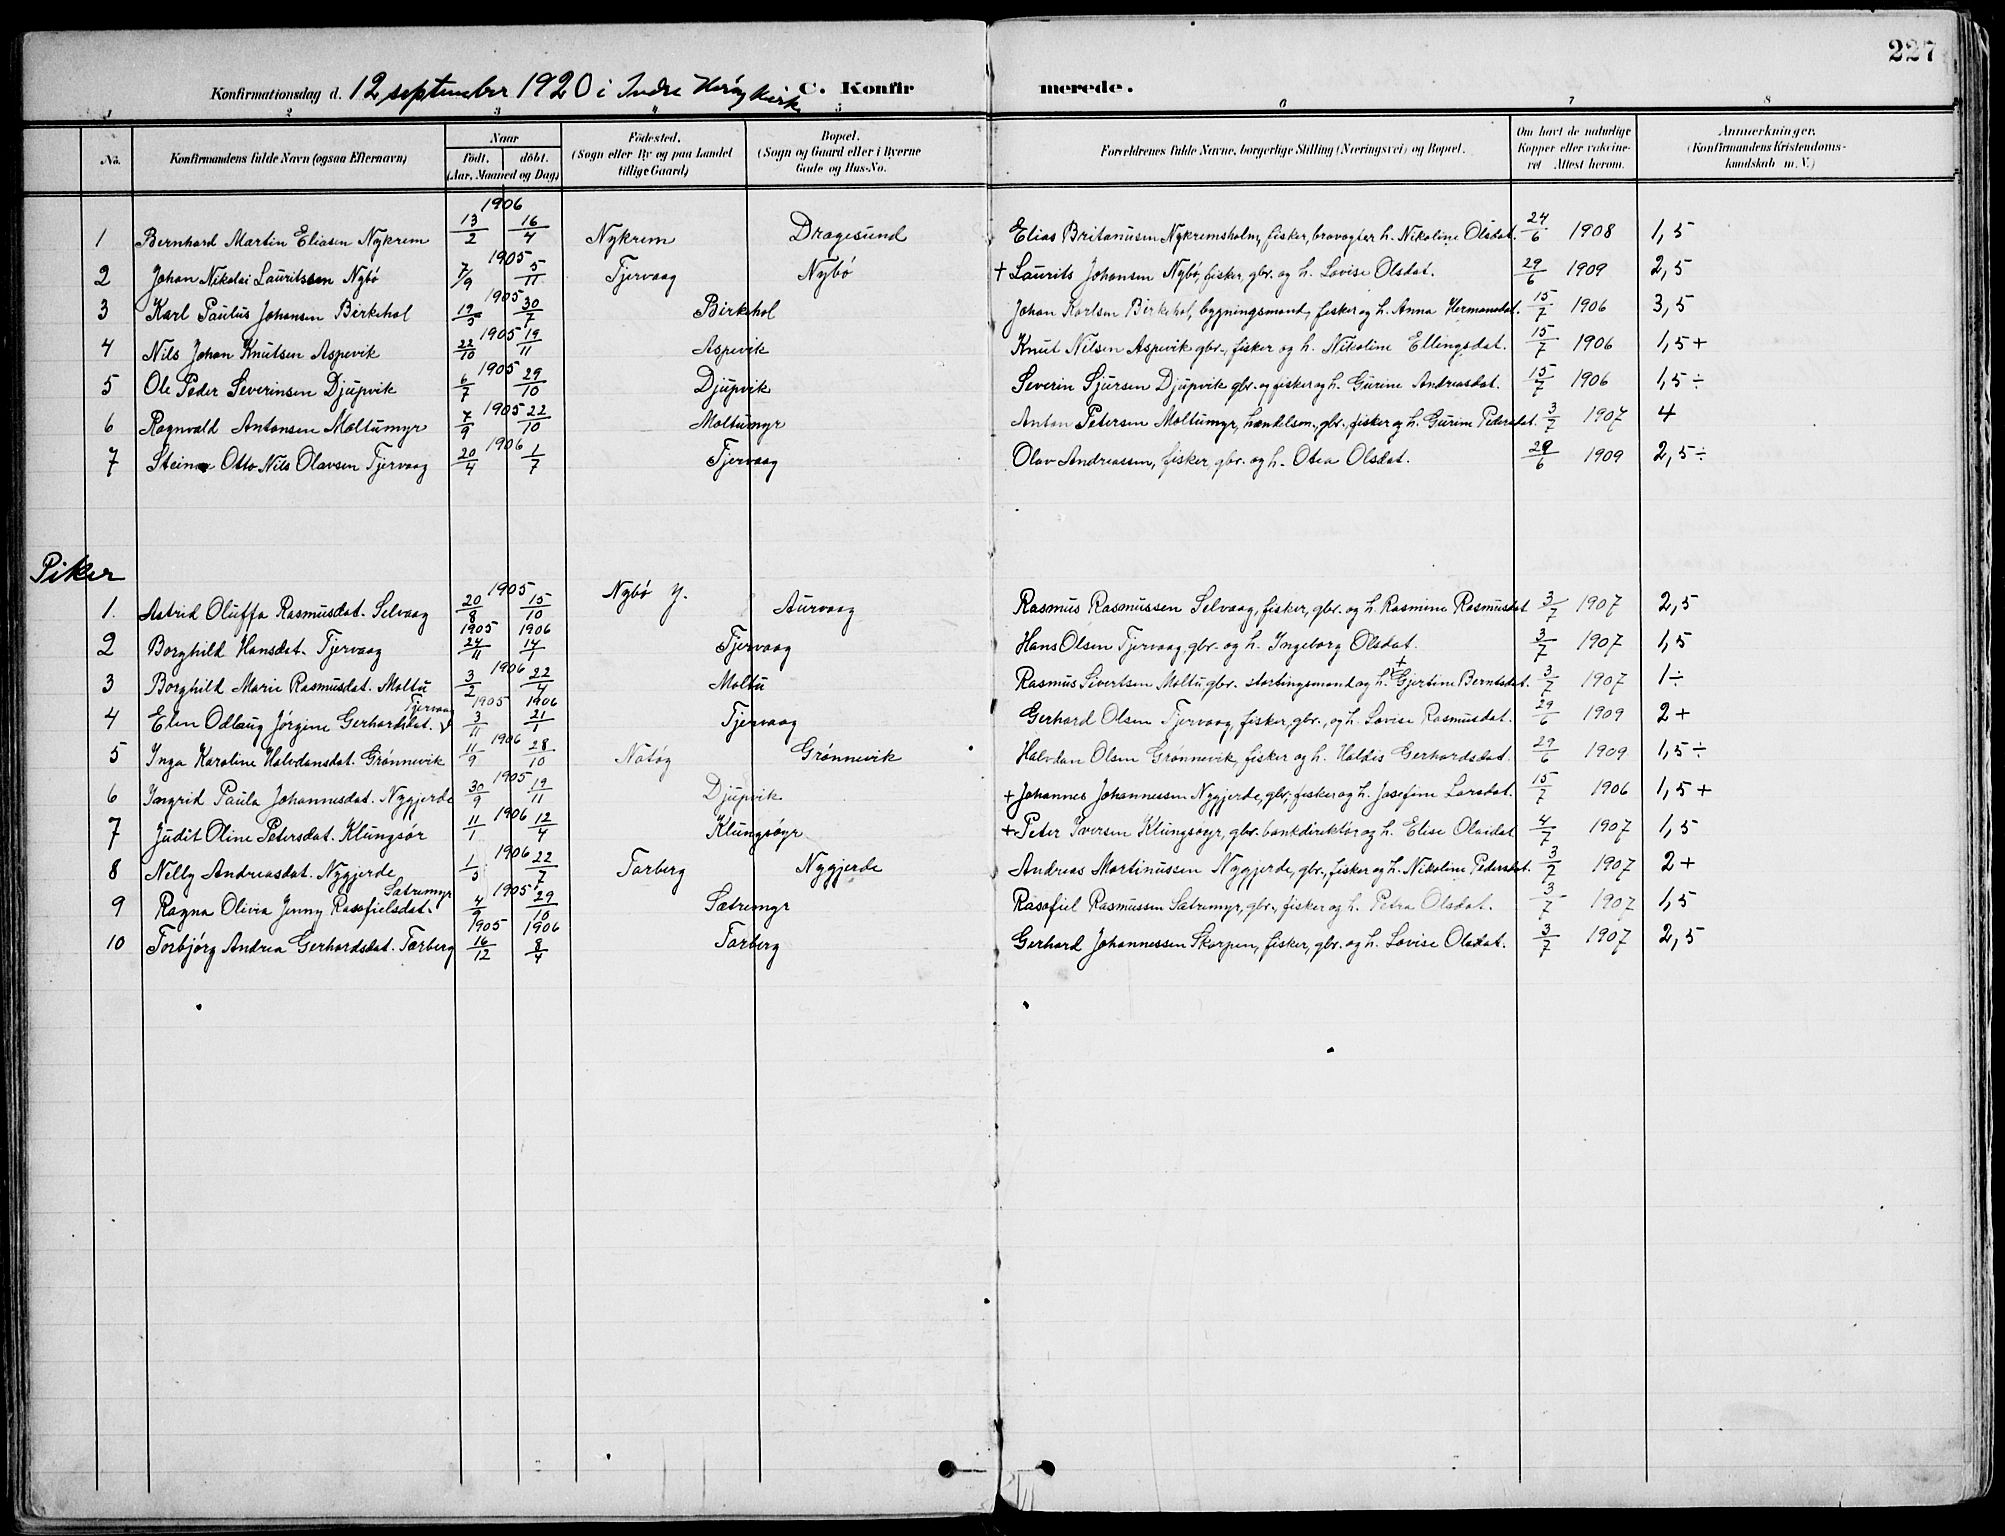 227
Konfirmationsdag d. 12 september 1920 i Indre Herøy kirke C. Konfirmerede.
1 2 3 4 5 6 7 8
No. Konfirmandens fulde Navn (ogsaa Efternavn) Naar født. døbt. (Aar, Maaned og Dag) Fødested. (Sogn eller By og paa Landet tillige Gaard) Bopæl. (Sogn og Gaard eller i Byerne Gade og Hus-No. Forældrenes fulde Navne, borgerlige Stilling (Næringsvei) og Bopæl. Om havt de naturlige Kopper eller vaccineret Attest herom. Anmærkninger. (Konfirmandens Kristendomskundskab m. V.)
1 Bernhard Martin Eliasen Nykrem 1906 13/2 16/4 Nykrem Dragesund Elias Britanusen Nykremsholm, fisker, bravagter h. Nikoline Olsdat. 24/6 1908 1,5
2 Johan Nikolai Lauritssen Nybø 1905 7/9 5/11 Tjervaag Nybø + Laurits Johansen Nybø, fisker, gbr. og h. Lovise Olsdat. 29/6 1909 2,5
3 Karl Paulus Johansen Birkehol 1905 19/5 30/7 Birkehol Johan Karlsen Birkehol, bygningsmand, fisker og h. Anna Hermansdat. 15/7 1906 3,5
4 Nils Johan Knutsen Aspevik 1905 22/10 19/11 Aspevik Knut Nilsen Aspevik gbr., fisker og h. Nikoline Ellingsdat. 15/7 1906 1,5+
5 Ole Peder Severinsen Djupvik 1905 6/7 29/10 Djupvik Severin Sjursen Djupvik gbr. og fisker og h. Gurine Andreasdat. 15/7 1906 1,5÷
6 Ragnvald Antonsen Moltumyr 1905 7/9 22/10 Moltumyr Anton Petersen Moltumyr, handelsm., gbr., fisker og h. Gurine Pedersdat. 3/7 1907 4
7 Steinar Otto Nils Olavsen Tjervaag 1906 20/4 1/7 Tjervaag Olav Andreassen, fisker, gbr. og h. Otea Olsdat. 29/6 1909 2,5÷
Piker
1. Astrid Oluffa Rasmusdat. Selvaag 1905 20/8 15/10 Nybø Y. Aurvaag Rasmus Rasmussen Selvaag, fisker, gbr. og h. Rasmine Rasmusdat 3/7 1907 2,5
2 Borghild Hansdat. Tjervaag 1905 1906 24/11 14/1 Tjervaag Hans Olsen Tjervaag, gbr. og h. Ingeborg Olsdat. 3/7 1907 1,5
3 Borghild Marie Rasmusdat. Moltu 1906 3/2 22/4 Moltu Rasmus Sivertsen Moltu gbr. stortingsmand og h. + Gjertine Berntsdat. 3/7 1907 1÷
4 Elen Odlaug Jørgine Gerhardsdat. Tjervaag 1905 1906 3/11 21/1 Tjervaag Gerhard Olsen Tjervaag, fisker, gbr., og h. Lovise Rasmusdat. 29/6 1909 2+
5 Inga Karoline Halvdansdat. Grønnevik 1906 11/9 28/10 Notøy Grønnevik Halvdan Olsen Grønnevik, fisker og h. Haldis Gerhardsdat. 29/6 1909 1,5÷
6 Ingrid Paula Johannesdat. Nygjerde 1905 30/9 19/11 Djupvik + Johannes Johannessen Nygjerde, gbr, fisker og h. Josefine Larsdat. 15/7 1906 1,5+
7 Judit Oline Petersdat. Klungsör 1906 11/1 12/4 Klungsöyr + Peter Iversen Klungsoyr, gbr. bankdirektør og h. Elise Olaidat 4/7 1907 1,5
8 Nelly Andreasdat. Nygjerde 1906 1/5 22/7 Tarberg Nygjerde Andreas Martinussen Nygjerde, gbr., fisker og h. Nikoline Pedersdat. 3/7 1907 2+
9 Ragna Olivia Jenny Rasafielsdat. Sætremyr 1905 4/9 29/10 Sætremyr Rasafiel Rasmussen Sætremyr, gbr., fisker og h. Petra Olsdat. 3/7 1907 1,5
10 Torbjørg Andrea Gerhardsdat. Tarberg 1905 1906 16/12 8/4 Tarberg Gerhard Johannessen Skorpen, fisker, gbr. og h. Lovise Olsdat. 3/7 1907 2,5